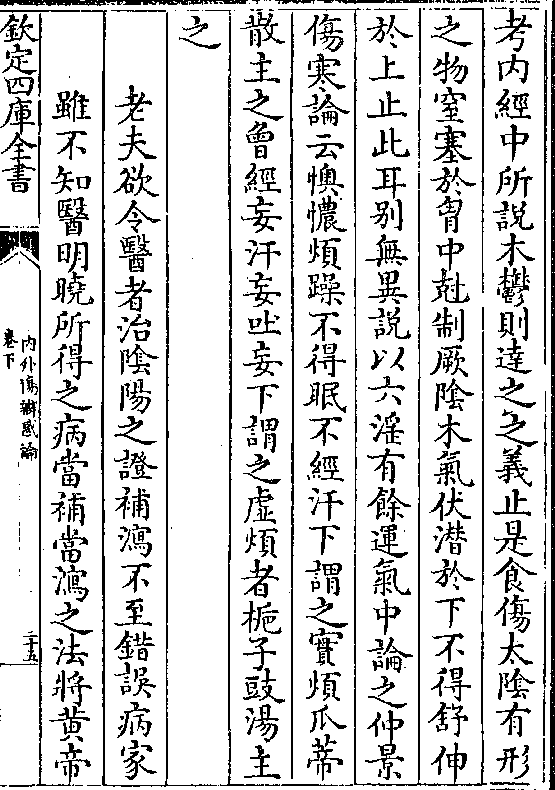 考内經中所説木鬱則達之之義止是食傷太陰有形
之物窒塞於胷中尅制厥陰木氣伏潜於下不得舒伸
於上止此耳别無異説以六淫有餘運氣中論之仲景
傷寒論云懊憹煩躁不得眠不經汗下謂之實煩瓜蒂
散主之曾經妄汗妄吐妄下謂之虚煩者梔子豉湯主
之
老夫欲令醫者治陰陽之證補瀉不至錯誤病家
雖不知醫明曉所得之病當補當瀉之法將黄帝
欽定四庫全書
内外傷辯惑論
卷下
三十五